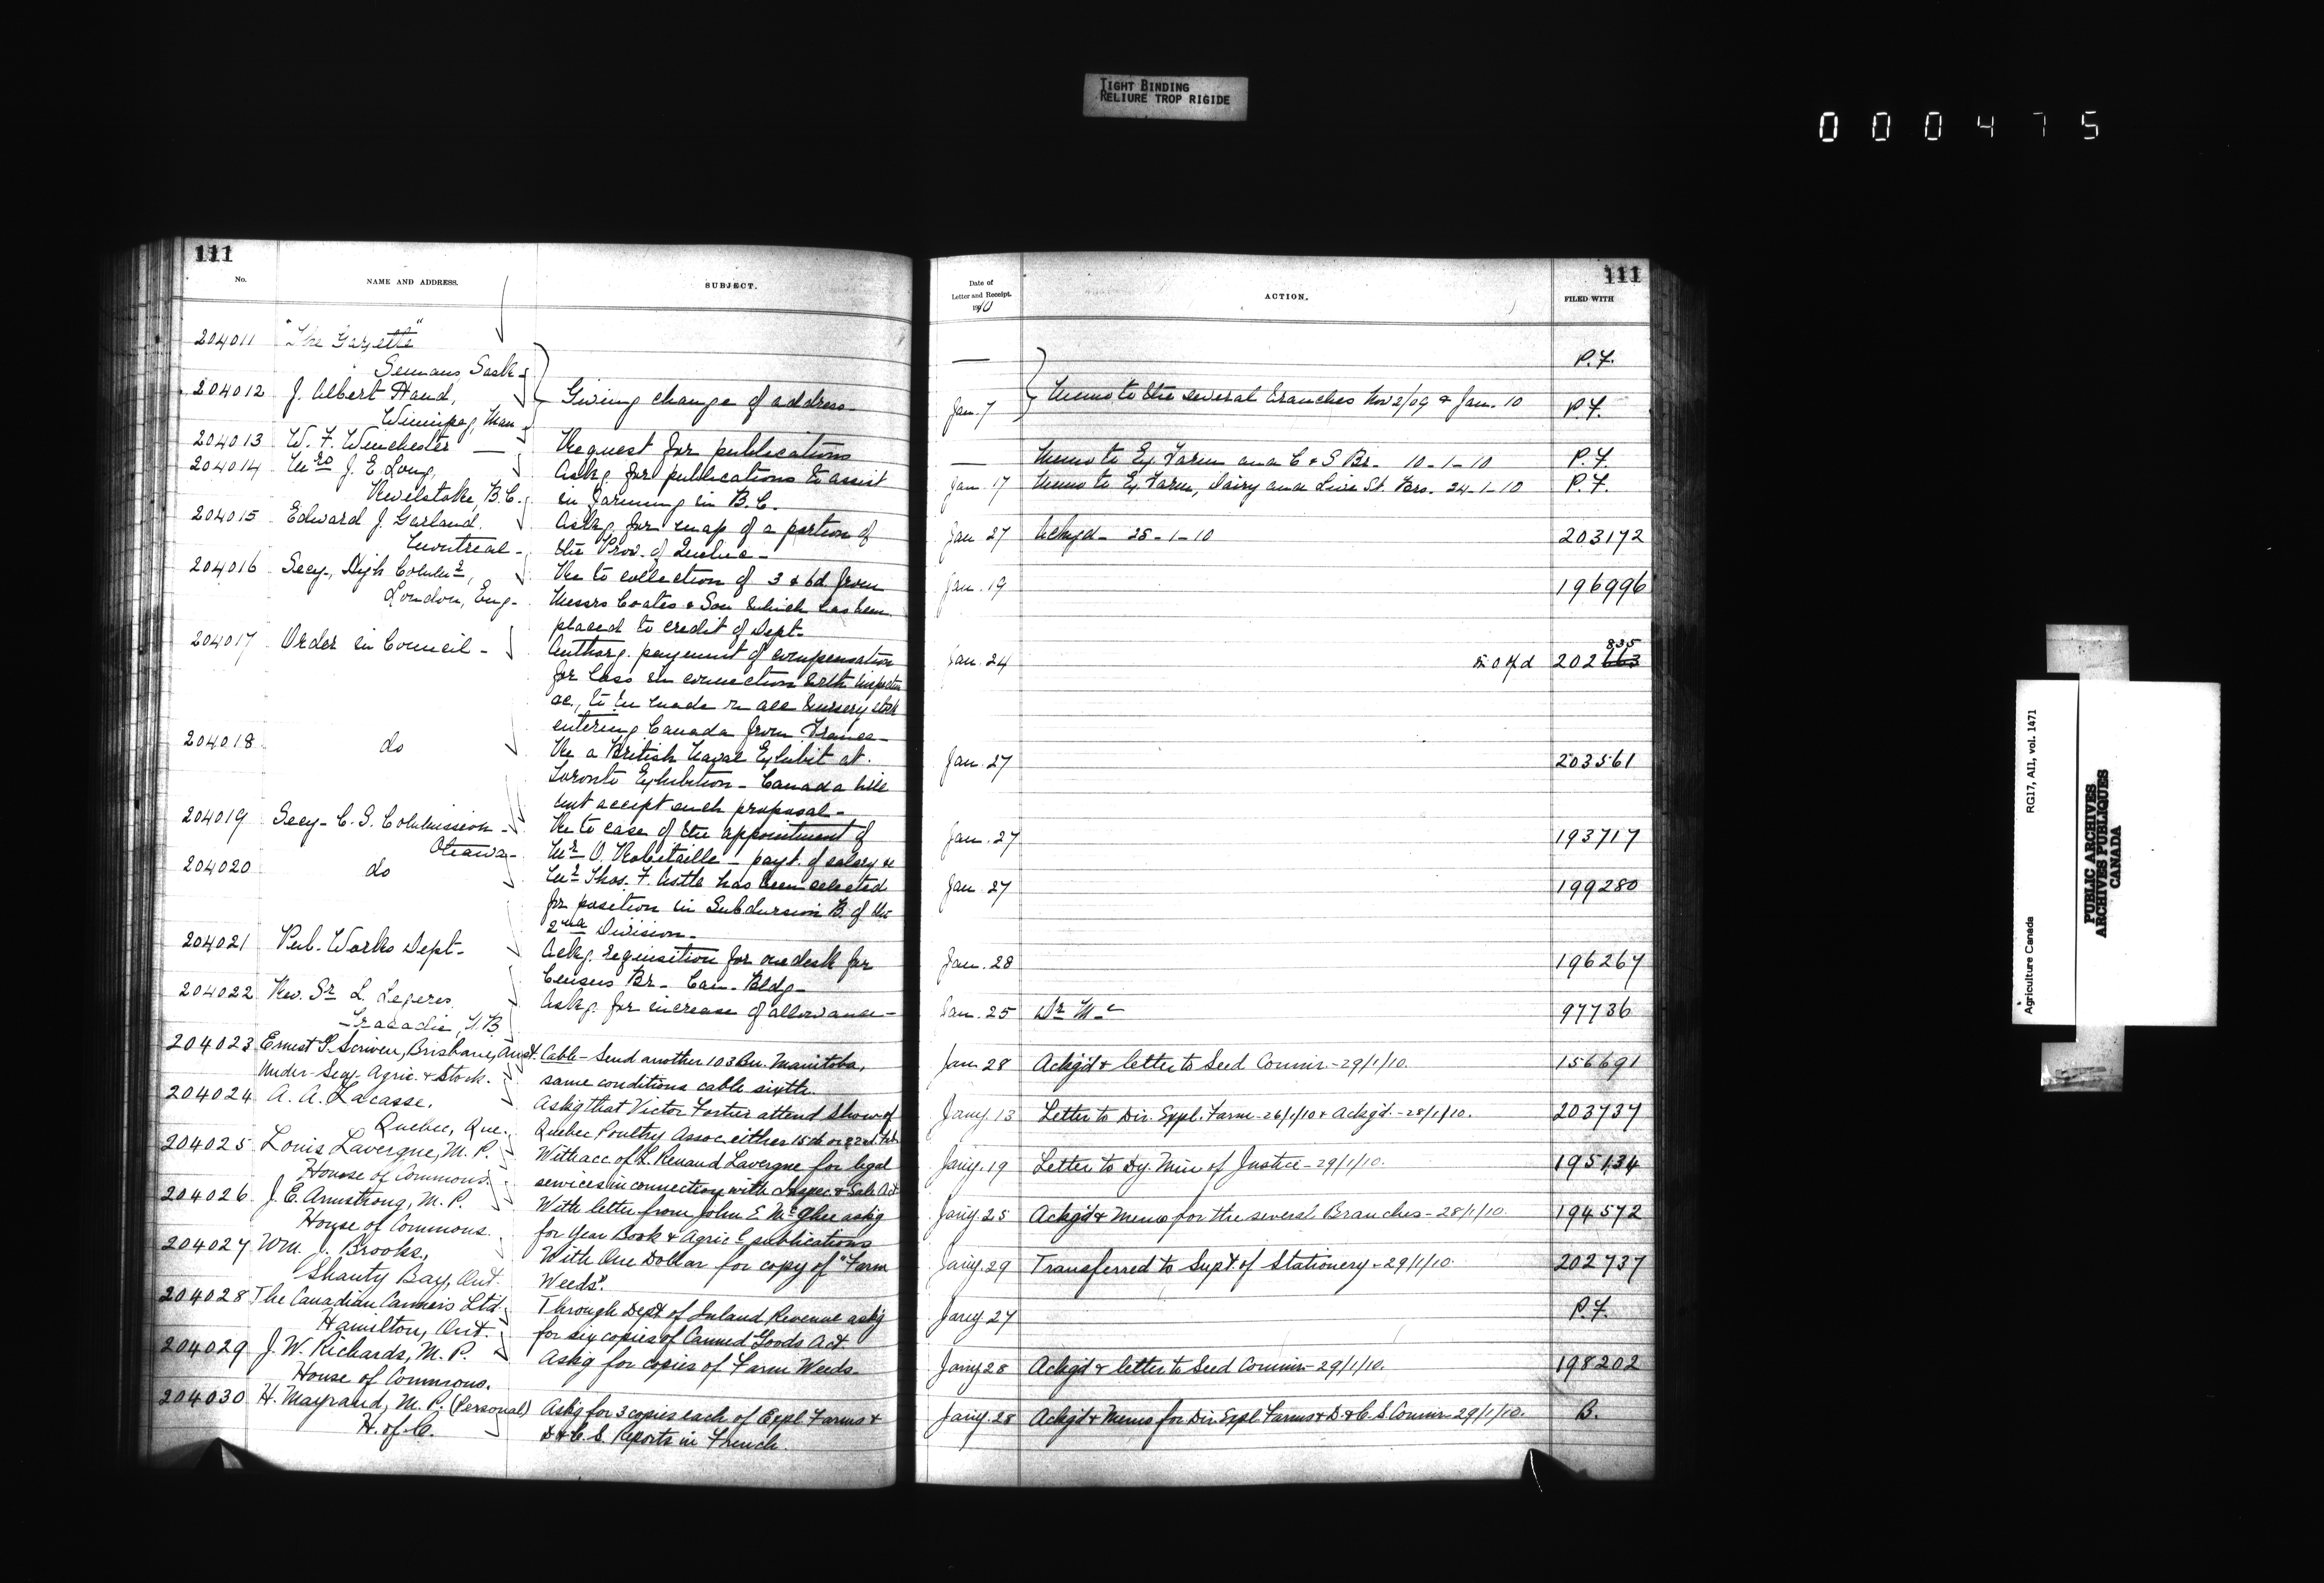 TIGHT BINDING
RELIURE TROP RIGIDE
000475
111
No.
NAME AND ADDRESS.
SUBJECT.
204011 "The Gazette"
Semans Sask.
204012 J. Albert Hand,
Winnipeg, Man.
Giving change of address
204013 W. F. Winchester — Request for publications
204014 Mrs J. E. Long, Askg. for publications to assist
Revelstoke, B.C. in farming in B.C.
204015 Edward J. Garland. Askg. for map of a portion of
Montreal - the Prov. of Quebec -
204016 Secy., High Commr, Re to collection of 3 & 6d from
London, Eng. Messrs Coates & Son which has been
placed to credit of Dept.
204017 Order in Council - Authorg. payment of compensation
for loss in connection with inspection
&c., to be made on all nursery stock
entering Canada from France -
204018 do Re a British Naval Exhibit at
Toronto Exhibition - Canada will
not accept such proposal -
204019 Secy - C. S. Commission - Re to case of the appointment of
Ottawa - Mr O. Robitaille - payt. of salary &c
204020 do Mr Thos. F. Astle has been selected
for position in Subdivision B of the
2nd Division -
204021 Pub. Works Dept - Ackg. requisition for one desk for
Census Br. - Can. Bldg -
204022 Rev. Sr L. Askg. for increase of allowance -
Tracadie, N.B.
204023 Ernest G. Scriven, Brisbane, Aust. Cable - Send another 103 Bu. Manitoba,
Under Secy. Agric. & Stock. same conditions cable sixth.
204024 A. A. Lacasse. Askg that Victor Fortier attend Show of
Quebec, Que. Quebec Poultry Assoc. either 15th or 22nd Feb
204025 Louis Lavergne, M. P. With acc of L. Renaud Lavergne for legal
House of Commons. services in connection with Inspec & Sale Act
204026 J. E. Armstrong, M. P. With letter from John E McGhee askg
House of Commons. for Year Book & Agric l publications
204027 Wm. J. Brooks, With One Dollar for copy of "Farm
Shanty Bay, Ont. Weeds".
204028 The Canadian Canners Ltd Through Dept of Inland Revenue askg
Hamilton, Ont. for six copies of Canned Goods Act.
204029 J. W. Richards, M. P. Askg for copies of Farm Weeds.
House of Commons.
204030 H. Mayrand, M. P. (Personal) Askg for 3 copies each of Expl. Farms &
H. of C. D. & C. S. Reports in French.
111
Date of
Letter and Receipt.
1910
ACTION.
FILED WITH
— P.F.
Jan. 7 Memo to the several Branches Nov 2/09 & Jan. 10 P.F.
— Memo to Ex. Farm and C & S Br. 10-1-10 P.F.
Jan. 17 Memo to Ex. Farm, Dairy and Live St. Brs. 24-1-10 P.F.
Jan 27 Ackgd - 28-1-10 203172
Jan. 19 196996
835
Jan. 24 202663
Jan. 27 203561
Jan. 27 193717
Jan. 27 199280
Jan. 28 196267
Jan. 25 97736
Jan 28 Ackg'd & letter to Seed Commr. - 29/1/10. 156691
Jany 13 Letter to Dir. Expl. Farm - 26/1/10 & Ackg'd. - 28/1/10. 203737
Jany. 19 Letter to Dy. Min of Justice - 29/1/10. 195134
Jany. 25 Ackg'd & Memo for the several Branches - 28/1/10. 194572
Jany. 29 Transferred to Supt of Stationery - 29/1/10. 202737
Jany 27 P.F.
Jany 28 Ackg'd & letter to Seed Commr - 29/1/10. 198202
Jany. 28 Ackg'd & Memo for Dir. Expl. Farms & D. & C. S. Commr - 29/1/10. B.
Agriculture Canada RG17, AI1, vol. 1471
PUBLIC ARCHIVES
ARCHIVES PUBLIQUES
CANADA